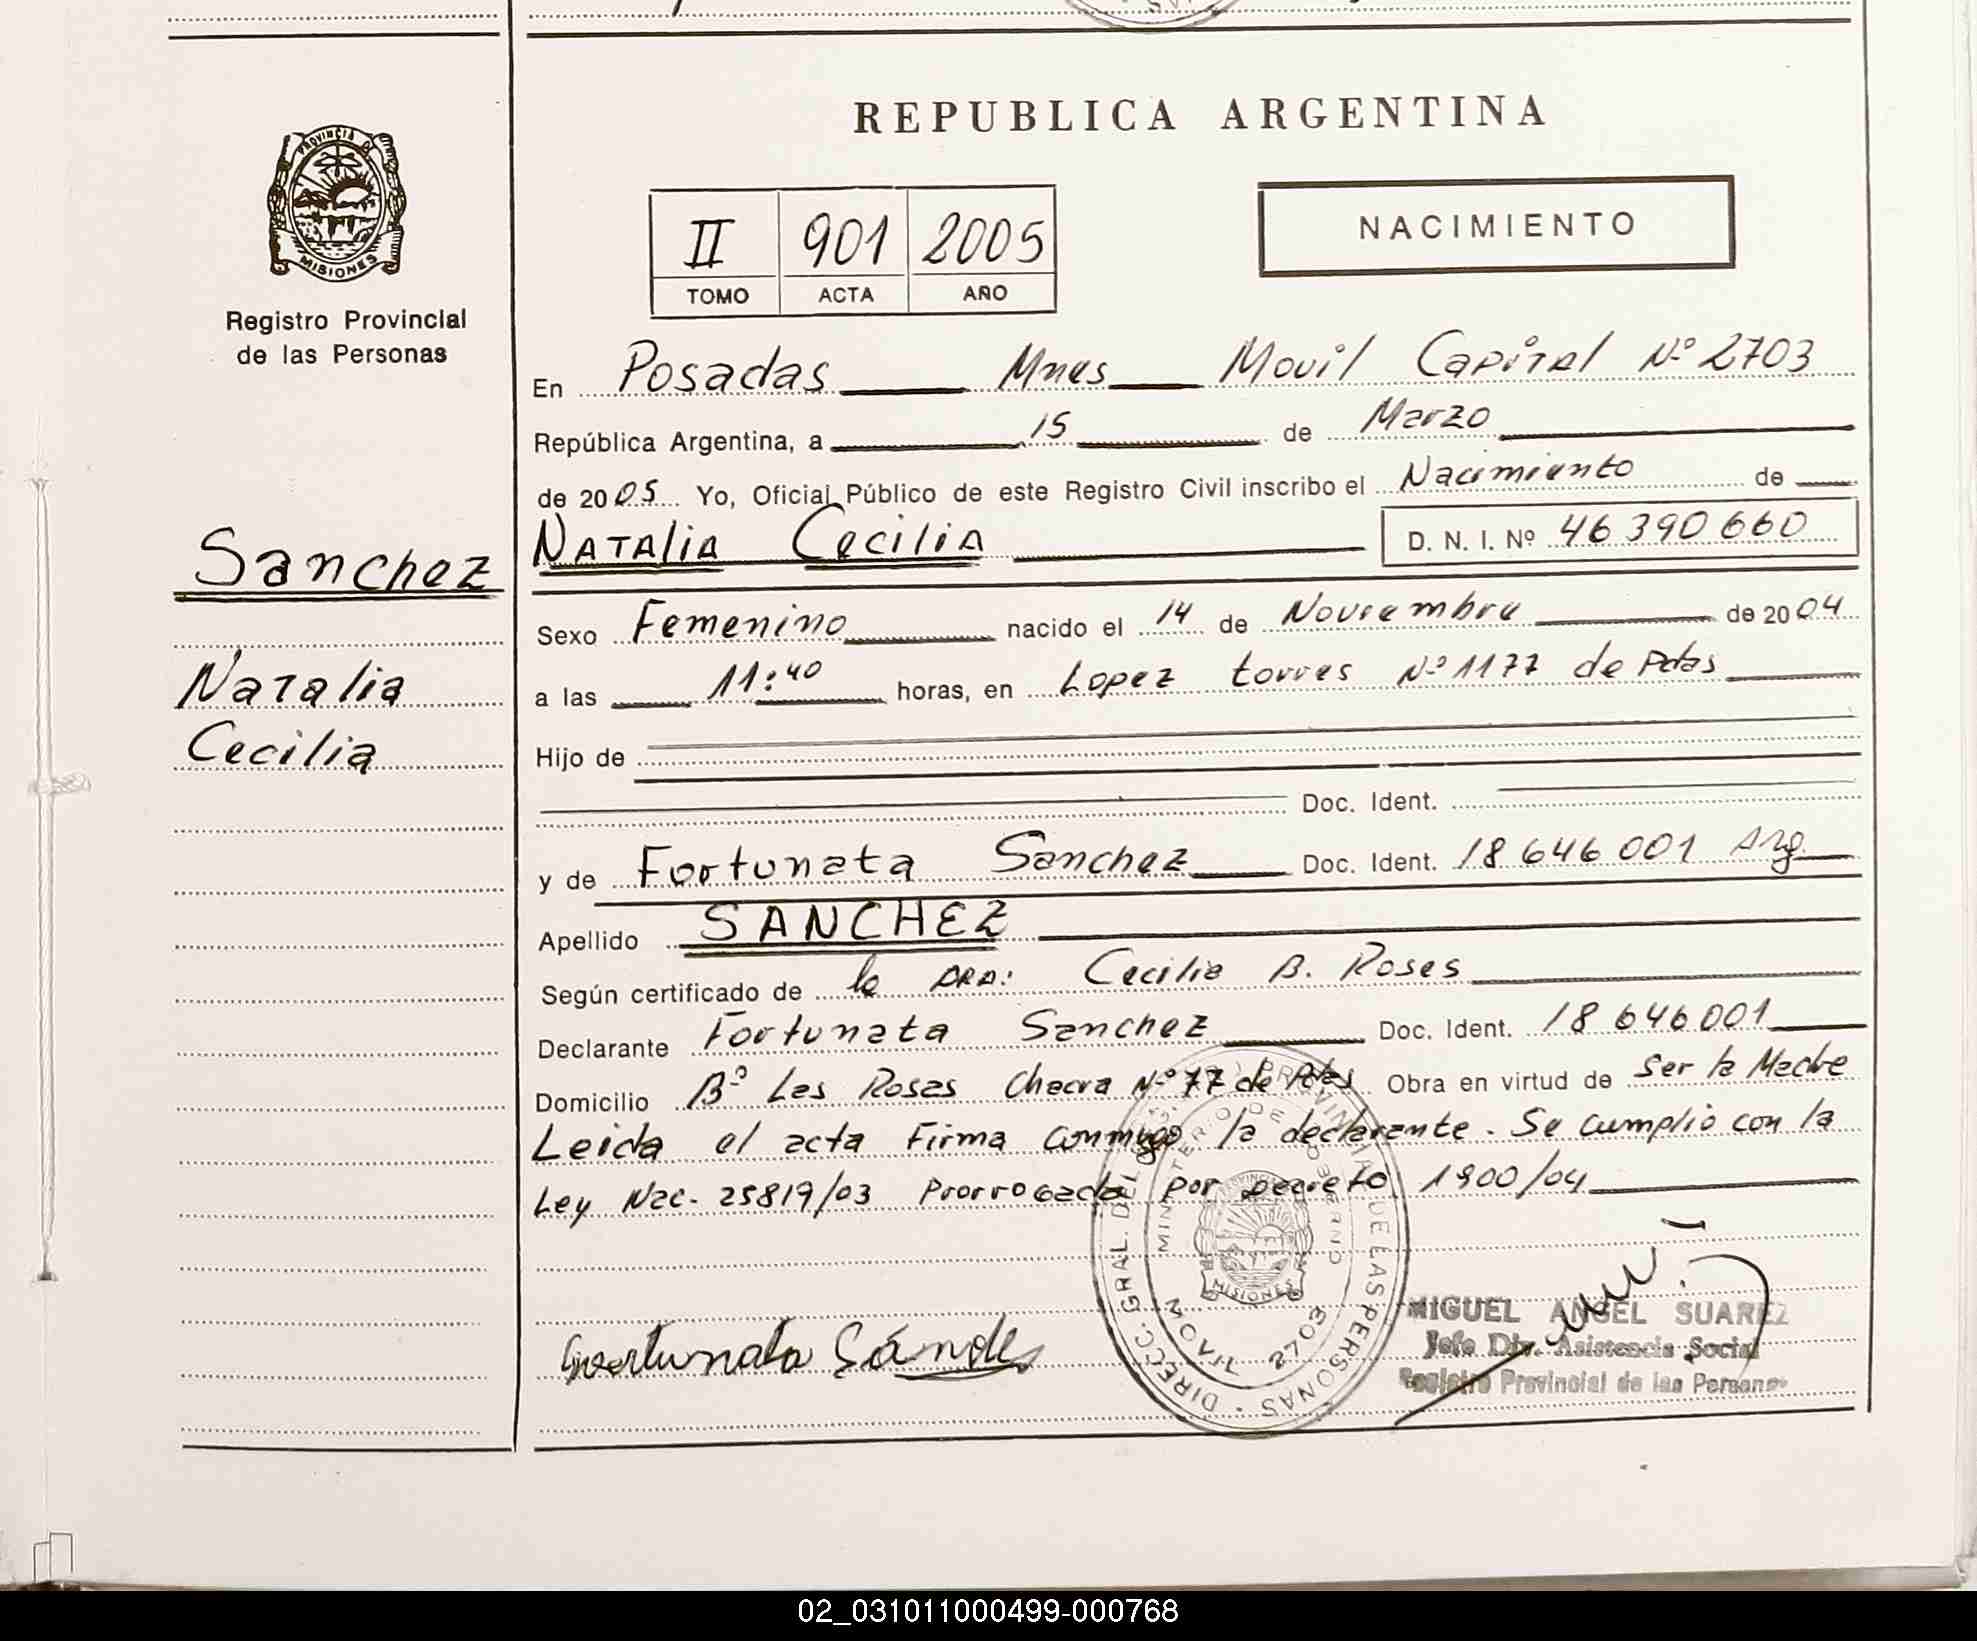 REPUBLICA ARGENTINA
PROVINCIA DE
MISIONES
Registro Provincial
de las Personas
II 901 2005
TOMO ACTA AÑO
NACIMIENTO
En Posadas Mnes Movil Capital Nº 2703
República Argentina, a 15 de Marzo
de 2005 Yo, Oficial Público de este Registro Civil inscribo el Nacimiento de
Sanchez
Natalia
Cecilia
NATALIA CECILIA D. N. I. Nº 46 390 660
Sexo Femenino nacido el 14 de Noviembre de 2004
a las 11:40 horas, en Lopez torres Nº 1177 de Pdas
Hijo de
Doc. Ident.
y de Fortunata Sanchez Doc. Ident. 18 646 001 Arg
Apellido SANCHEZ
Según certificado de la DRA: Cecilia B. Roses
Declarante Fortunata Sanchez Doc. Ident. 18 646 001
Domicilio Bº Las Rosas Chacra Nº 77 de Pdas Obra en virtud de Ser la Madre
Leida el acta Firma conmigo la declarante. Se cumplio con la
Ley Nac. 25819/03 Prorrogada por Decreto 1900/04
DIRECC. GRAL. DEL PROVINCIAL DE LAS PERSONAS
MINISTERIO DE GOBIERNO
MISIONES
MOVIL 2703
MIGUEL ANGEL SUAREZ
Jefe Div. Asistencia Social
Registro Provincial de las Personas
02_031011000499-000768